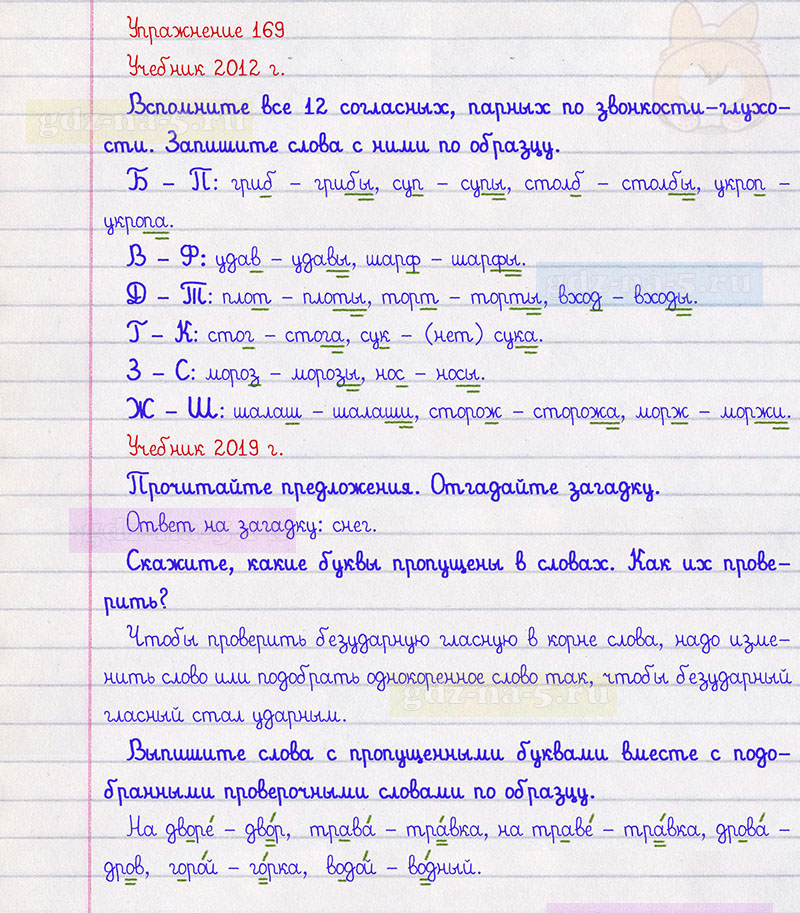 Упражнение 169
Учебник 2012 г.
Вспомните все 12 согласных, парных по звонкости-глухо-
сти. Запишите слова с ними по образцу.
Б - П: гриб - грибы, суп - супы, столб - столбы, укроп -
укропа.
В - Ф: удав - удавы, шарф - шарфы.
Д - Т: плот - плоты, торт - торты, вход - входы.
Г - К: стог - стога, сук - (нет) сука.
З - С: мороз - морозы, нос - носы.
Ж - Ш: шалаш - шалаши, сторож - сторожа, морж - моржи.
Учебник 2019 г.
Прочитайте предложения. Отгадайте загадку.
Ответ на загадку: снег.
Скажите, какие буквы пропущены в словах. Как их прове-
рить?
Чтобы проверить безударную гласную в корне слова, надо изме-
нить слово или подобрать однокоренное слово так, чтобы безударный
гласный стал ударным.
Выпишите слова с пропущенными буквами вместе с подо-
бранными проверочными словами по образцу.
На дворе́ - дво́р, трава́ - тра́вка, на траве́ - тра́вка, дрова́ -
дров, горо́й - го́рка, водо́й - во́дный.
gdz-na-5.ru
gdz-na-5.ru
gdz-na-5.ru
gdz-na-5.ru